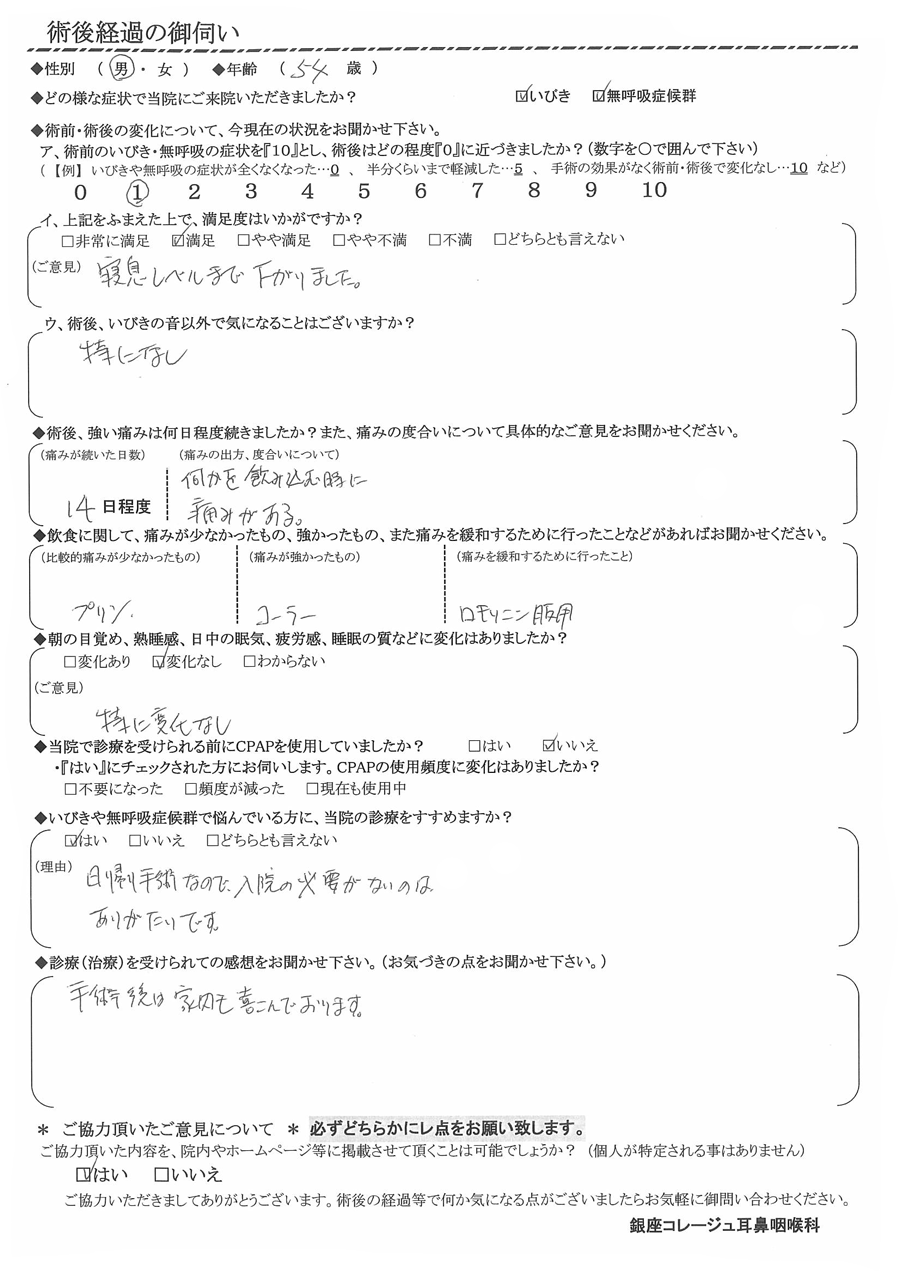 術後経過の御伺い
◆性別 (男・女) ◆年齢 (54歳)
◆どの様な症状で当院にご来院いただきましたか? ☑いびき ☑無呼吸症候群
◆術前・術後の変化について、今現在の状況をお聞かせ下さい。
ア、術前のいびき・無呼吸の症状を『10』とし、術後はどの程度『0』に近づきましたか?(数字を〇で囲んで下さい)
(【例】いびきや無呼吸の症状が全くなくなった…0 、 半分くらいまで軽減した…5 、 手術の効果がなく術前・術後で変化なし…10 など)
0 ① 2 3 4 5 6 7 8 9 10
イ、上記をふまえた上で、満足度はいかがですか?
□非常に満足 ☑満足 □やや満足 □やや不満 □不満 □どちらとも言えない
(ご意見) 寝息レベルまで下がりました。
ウ、術後、いびきの音以外で気になることはございますか?
特になし
◆術後、強い痛みは何日程度続きましたか?また、痛みの度合いについて具体的なご意見をお聞かせください。
(痛みが続いた日数) (痛みの出方、度合いについて)
何かを飲み込む時に
14日程度 痛みがある。
◆飲食に関して、痛みが少なかったもの、強かったもの、また痛みを緩和するために行ったことなどがあればお聞かせください。
(比較的痛みが少なかったもの) (痛みが強かったもの) (痛みを緩和するために行ったこと)
プリン. コーラー ロキソニン服用
◆朝の目覚め、熟睡感、日中の眠気、疲労感、睡眠の質などに変化はありましたか?
□変化あり ☑変化なし □わからない
(ご意見)
特に変化なし
◆当院で診療を受けられる前にCPAPを使用していましたか? □はい ☑いいえ
・『はい』にチェックされた方にお伺いします。CPAPの使用頻度に変化はありましたか?
□不要になった □頻度が減った □現在も使用中
◆いびきや無呼吸症候群で悩んでいる方に、当院の診療をすすめますか?
☑はい □いいえ □どちらとも言えない
(理由) 日帰り手術なので、入院の必要がないのは
ありがたいです。
◆診療(治療)を受けられての感想をお聞かせ下さい。(お気づきの点をお聞かせ下さい。)
手術後は家内も喜こんでおります。
* ご協力頂いたご意見について * 必ずどちらかにレ点をお願い致します。
ご協力頂いた内容を、院内やホームページ等に掲載させて頂くことは可能でしょうか? (個人が特定される事はありません)
☑はい □いいえ
ご協力いただきましてありがとうございます。術後の経過等で何か気になる点がございましたらお気軽に御問い合わせください。
銀座コレージュ耳鼻咽喉科